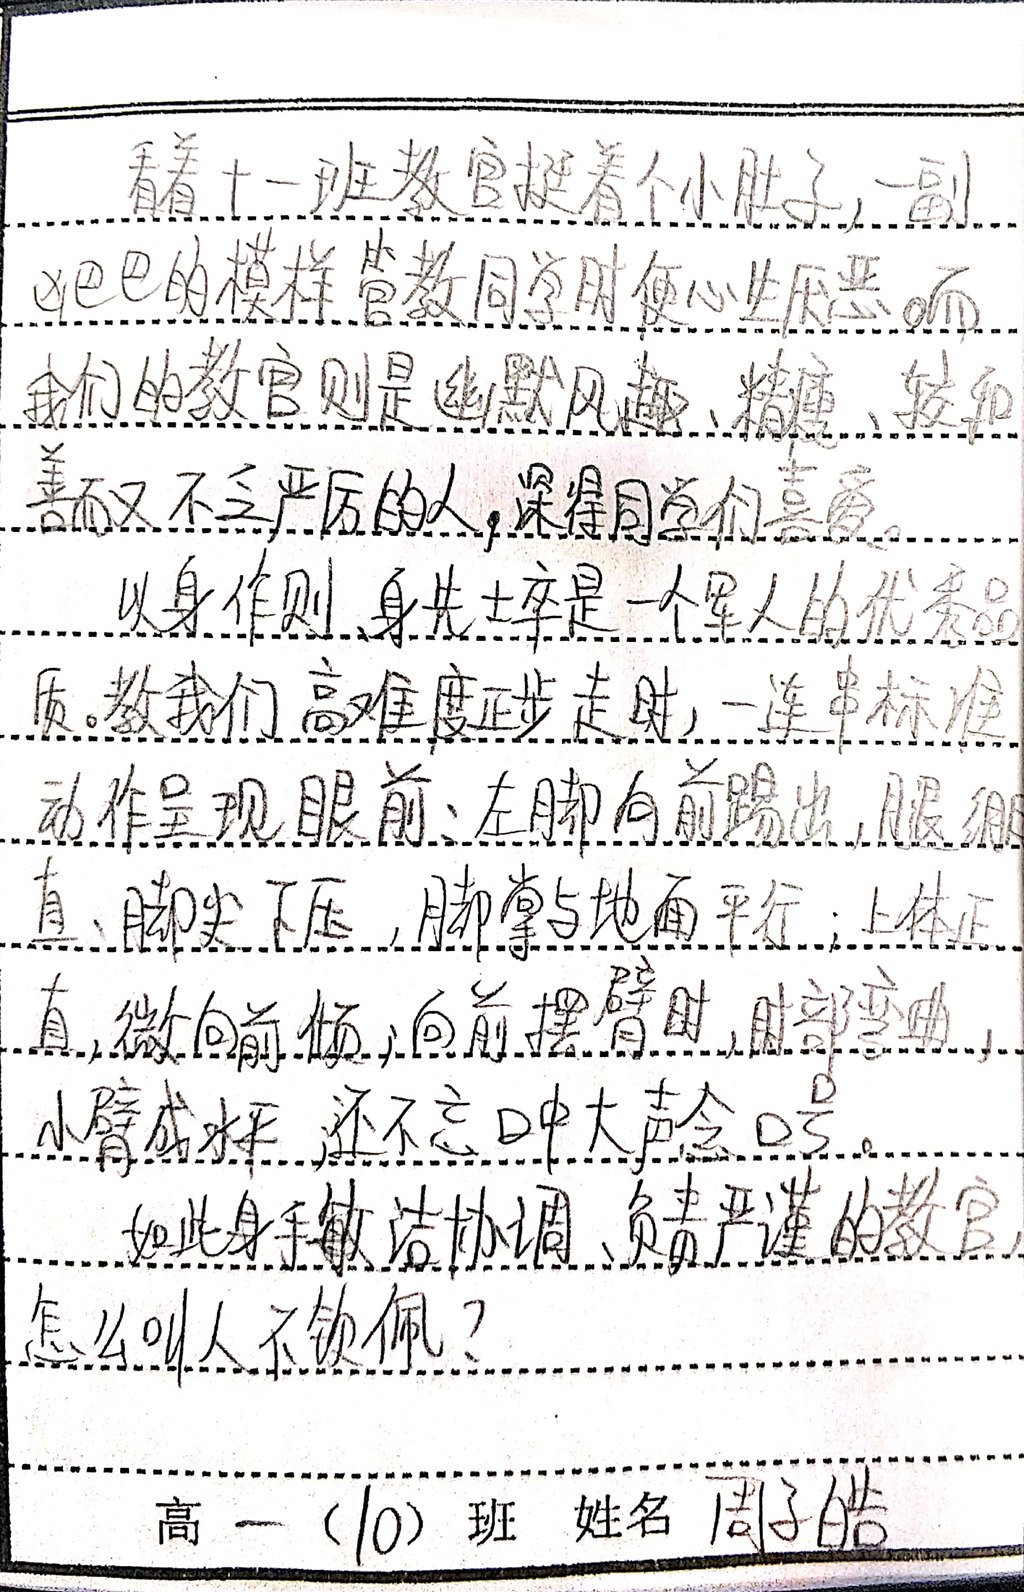 看着十一班教官挺着个小肚子,一副
凶巴巴的模样管教同学时便心生厌恶。而
我们的教官则是幽默风趣、精瘦、较和
善而又不乏严厉的人,深得同学们喜爱。
以身作则、身先士卒是一个军人的优秀品
质。教我们高难度正步走时,一连串标准
动作呈现眼前:左脚向前踢出,腿绷
直、脚尖下压,脚掌与地面平行;上体正
直,微向前倾;向前摆臂时,肘部弯曲,
小臂成水平,还不忘口中大声念口号。
如此身手敏洁协调、负责严谨的教官,
怎么叫人不钦佩?
高一(10)班 姓名 周子皓